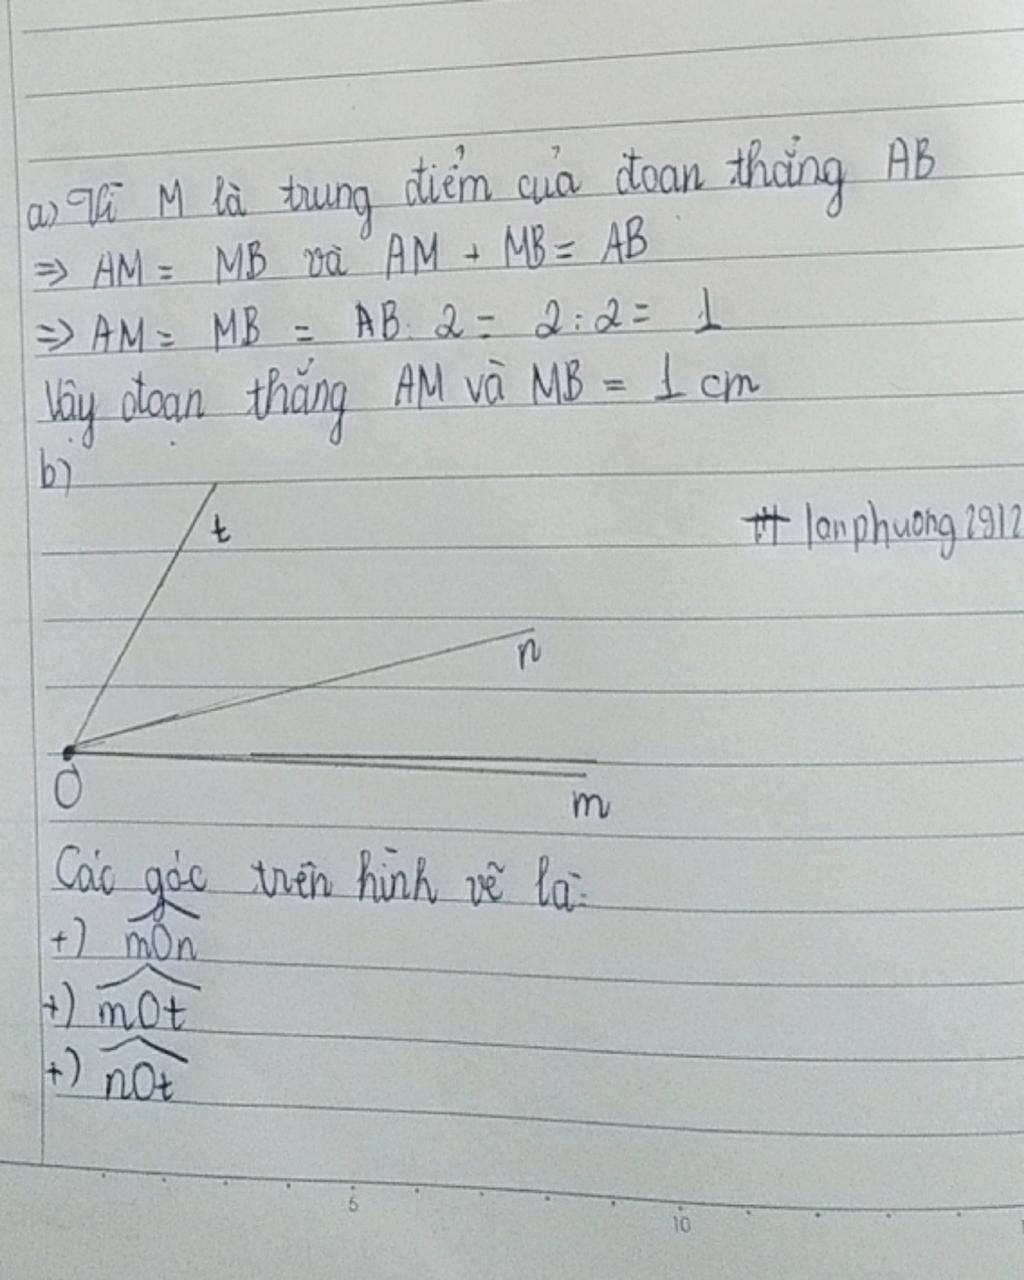 a) Vì M là trung điểm của đoan thẳng AB
=> AM = MB và AM + MB = AB
=> AM = MB = AB: 2 = 2:2 = 1
Vậy đoạn thẳng AM và MB = 1 cm
b)
t
# lanphuong2912
n
O
m
Các góc trên hình vẽ là:
+) mOn
+) mOt
+) nOt
5
10